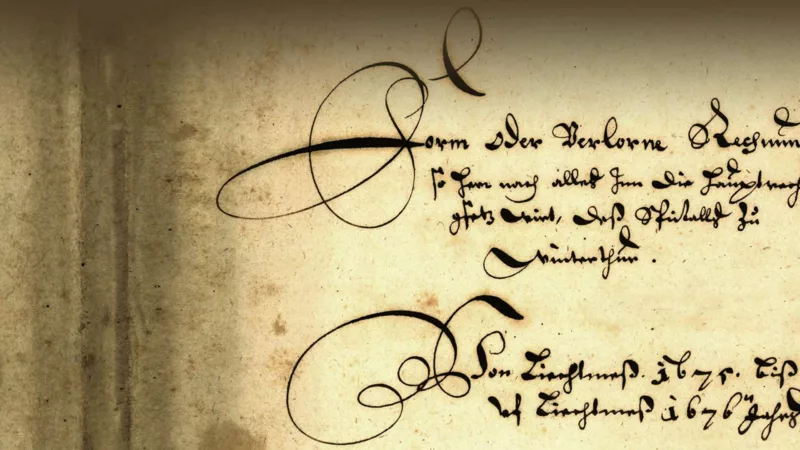 Form oder Verlorne Rechnun
so herr nach alles Inn die hauptrech
gsetz wirt, deß Spitalls zu
Winterthur.
Von Liechtmeß. 1675. biß
uf Liechtmeß 1676 Jahrs